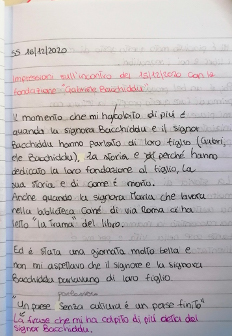 SS 16/12/2020
Impressioni sull'incontro del 15/12/2020 con la
fondazione "Gabriele Bacchiddu"
Il momento che mi ha colpito di più è
quando la signora Bacchiddu e il signor
Bacchiddu hanno parlato di loro figlio (Gabri,
ele Bacchiddu), la storia e perché hanno
dedicato la loro fondazione al figlio, la
sua storia e di come è morto.
Anche quando la signora Maria che lavora
nella biblioteca di via Roma ci ha
letto "la trama" del libro.
Ed è stata una giornata molto bella e
non mi aspettavo che il signore e la signora
Bacchiddu parlavano di loro figlio.
"Un paese senza cultura è un paese finito"
La frase che mi ha colpito di più detta dal
Signor Bacchiddu.